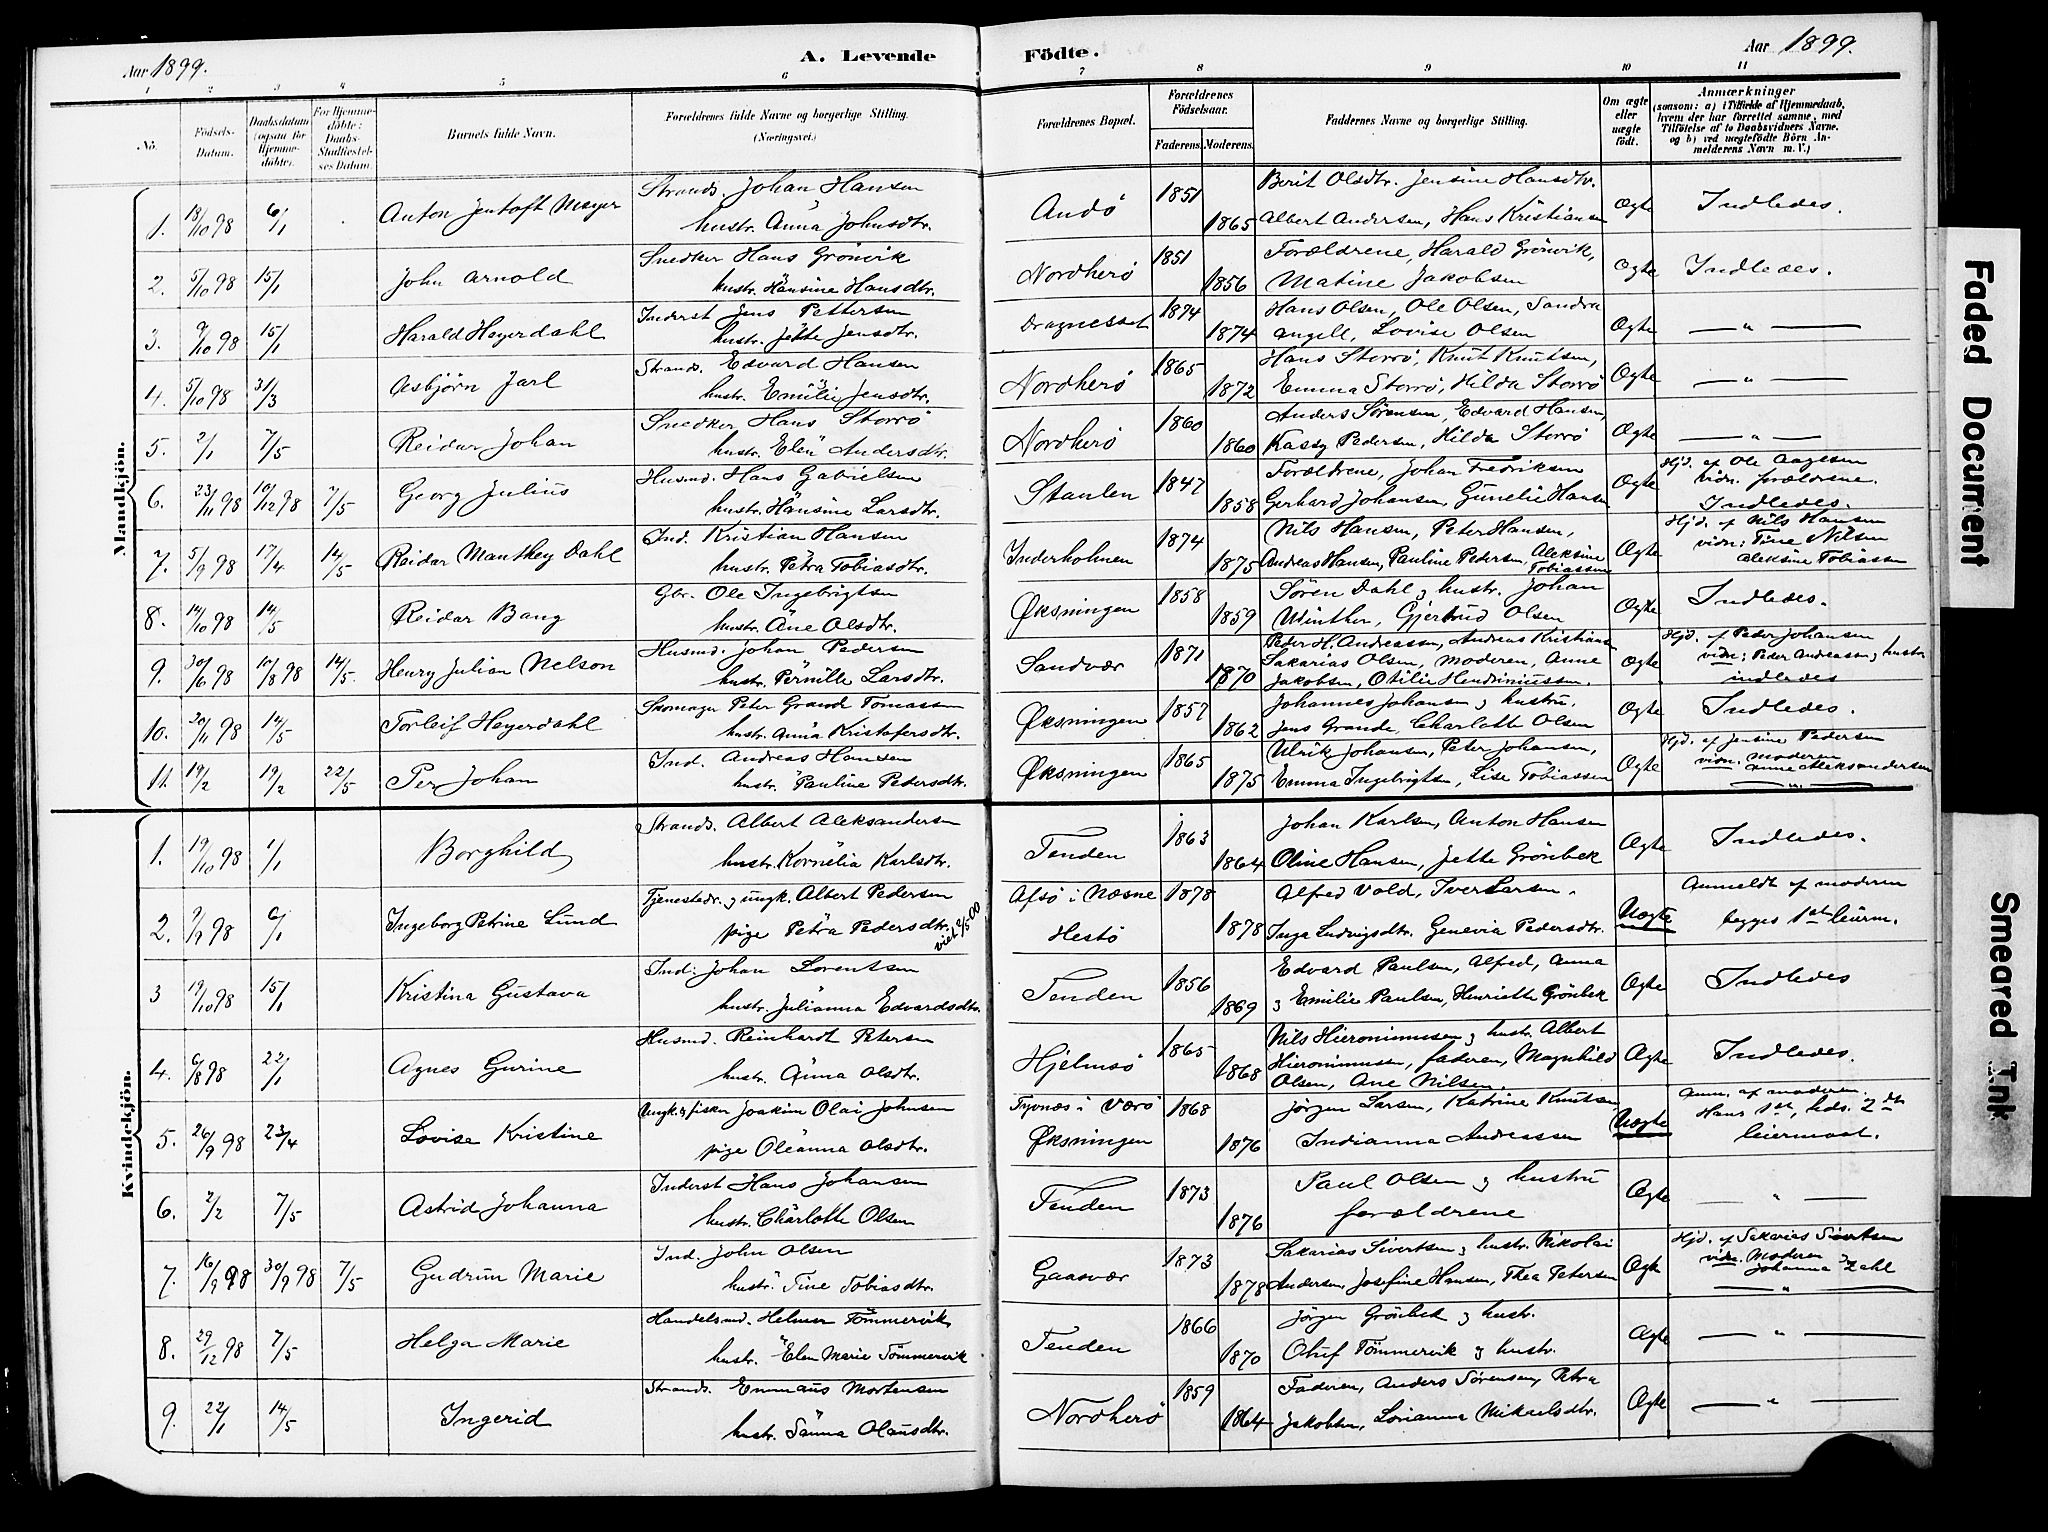 Aar 1899.
A. Levende
Födte.
Aar 1899.
1 2 3 4 5 6 7 8 9 10 11
No.
Födsels-Datum.
Daabsdatum (ogsaa for Hjemmedöbte).
For Hjemmedöbte: Daabs-Stadfæstelses Datum.
Barnets fulde Navn.
Forældrenes fulde Navne og borgerlige Stilling.
(Næringsvei.)
Forældrenes Bopæl.
Forældrenes Födselsaar.
Faderens. Moderens.
Faddernes Navne og borgerlige Stilling.
Om ægte eller uægte født.
Anmærkninger
(saasom: a) i Tilfælde af Hjemmedaab, hvem der har forrettet samme, med Tilføielse af to Daabsvidners Navne, og b) ved uægtefödte Börn Anmelderens Navn m. V.)
Mandkjön.
1. 18/10 98 6/1 Anton Jentoft Meyer Strands. Johan Hansen
hustr. Anna Johnsdtr. Andö 1851 1865 Berit Olsdtr. Jensine Hansdtr.
Albert Andersen, Hans Kristiansen Ægte Indledes.
2. 5/10 98 15/1 John Arnold Snedker Hans Grönvik
hustr. Hansine Hansdtr. Nordherö 1851 1856 Forældrene, Harald Grönvik,
Matine Jakobsen Ægte Indledes.
3. 9/10 98 15/1 Harald Heyerdahl Inderst Jens Pettersen
hustr. Jette Jensdtr. Dragnesset 1874 1874 Hans Olsen, Ole Olsen, Sandra
Angell, Lovise Olsen Ægte — " —
4. 5/10 98 31/3 Asbjörn Jarl Strands. Edvard Hansen
hustr. Emilie Jensdtr. Nordherö 1865 1872 Hans Storrö, Knut Knutsen,
Emma Storrö, Hilda Storrö Ægte — " —
5. 2/1 7/5 Reidar Johan Snedker Hans Storrö
hustr. Elen Andersdtr. Nordherö 1860 1860 Anders Sörensen, Edvard Hansen,
Kassy Pedersen, Hilda Storrö Ægte — " —
6. 23/11 98 10/12 98 7/5 Georg Julius Husmd. Hans Gabrielsen
hustr. Hansine Larsdtr. Staulen 1847 1858 Forældrene, Johan Fredriksen
Gerhard Johansen, Gunelie Hansen Ægte Hjd. af Ole Aagesen
vidn. forældrene.
Indledes.
7. 5/9 98 17/4 14/5 Reidar Manthey Dahl Ind. Kristian Hansen
hustr. Petra Tobiasdtr. Inderholmen 1874 1875 Nils Hansen, Peter Hansen,
Andreas Hansen, Pauline Pedersen, Aleksine Tobiassen Ægte Hjd. af Nils Hansen
vidn: Tine Nilsen
Aleksine Tobiassen
8. 14/10 98 14/5 Reidar Bang Gbr. Ole Ingebrigtsen
hustr. Ane Olsdtr. Øksningen 1858 1859 Sören Dahl og hustr. Johan
Winther, Gjertrud Olsen Ægte Indledes.
9. 30/6 98 10/8 98 14/5. Henry Julian Nelson Husmd. Johan Pedersen
hustr. Pernille Larsdtr. Sandvær 1871 1870 Peder H. Andreassen, Andreas Kristians.
Sakarias Olsen, Moderen, Anne
Jakobsen, Otilie Hendriniussen. Ægte Hjd. af Peder Johansen
vidn: Peder Andreassen og hustr
indledes
10. 20/11 98 14/5 Torleif Heyerdahl Skomager Peter Grande Tomassen
hustr. Anna Kristofersdtr. Øksningen 1857 1862 Johannes Johansen og hustru,
Jens Grande, Charlotte Olsen Ægte Indledes.
11. 19/2 19/2 22/5 Per Johan Ind. Andreas Hansen
hustr. Pauline Petersdtr. Øksningen 1865 1875 Ulrik Johansen, Peter Johansen,
Emma Ingebrigtsen, Lise Tobiassen Ægte Hjd. af Jensine Pedersen
vidn. Moderen
Anne Aleksandersen
— " —
Kvindekjön.
1. 19/10 98 1/1 Borghild Strands. Albert Aleksandersen
hustr. Kornelia Karlsdtr. Tenden 1863 1864 Johan Karlsen, Anton Hansen
Oline Hansen, Jette Grönbek Ægte Indledes.
2. 9/9 98 6/1 Ingeborg Petrine Lund Tjenestedr. og ungk. Albert Pedersen
pige Petra Pedersdtr. viet 2/5 00 Afsö i Næsne
Hestö 1878 1878 Alfred Vold, Iver Larsen,
Inga Ludvigsdtr. Genevia Pedersdtr. Uægte Anmeldt af moderen
begges 1ste leierm.
3 19/10 98 15/1 Kristina Gustava Ind: Johan Lorentsen
hustr. Julianna Edvardsdtr. Tenden 1856 1869 Edvard Paulsen, Alfred, Anna
og Emilie Paulsen, Henriette Grönbek Ægte Indledes
4. 6/8 98 22/1 Agnes Gurine Husmd. Reinhardt Petersen
hustr. Anna Olsdtr. Hjelmsö 1865 1868 Nils Hieronimusen og hustr. Albert
Hieronimusen, faderen, Magnhild
Olsen, Ane Nilsen. Ægte Indledes.
5. 26/9 98 23/4 Lovise Kristine Ungk. & fisker Joakim Olai Johnsen
pige Oleanna Olsdtr. Tyvnæs i Værö
Øksningen 1868 1876 Jörgen Larsen, Katrine Knutsen
Indianna Andreassen Uægte Anm. af moderen.
Hans 1ste, hds. 2det
leiermaal.
6. 2/2 7/5 Astrid Johanna Inderst Hans Johansen
hustr. Charlotte Olsen Tenden 1873 1876 Paul Olsen og hustru
forældrene Ægte — " —
7. 16/9 98 30/9 98 7/5 Gudrun Marie Ind. John Olsen
hustr. Tine Tobiasdtr. Gaasvær 1873 1878 Sakarias Sivertsen og hustr. Nikolai
Andersen, Josefine Hansen, Thea Petersen Ægte Hjd. af Sakarias Sivertsen
vidn. Moderen
Johanna Zahl
— " —
8. 29/12 98 7/5 Helga Marie Handelsmd. Helmer Tömmervik
hustr. Elen Marie Tömmervik Tenden 1866 1870 Jörgen Grönbek og hustr.
Oluf Tömmervik og hustr. Ægte — " —
9. 22/1 14/5 Ingerid Strands. Emmaus Mortensen
hustr. Sanna Olausdtr. Nordherö 1859 1864 Faderen, Anders Sörensen, Petra
Jakobsen, Lorianna Mikaelsdtr. Ægte — " —
Faded Document
Smeared Ink